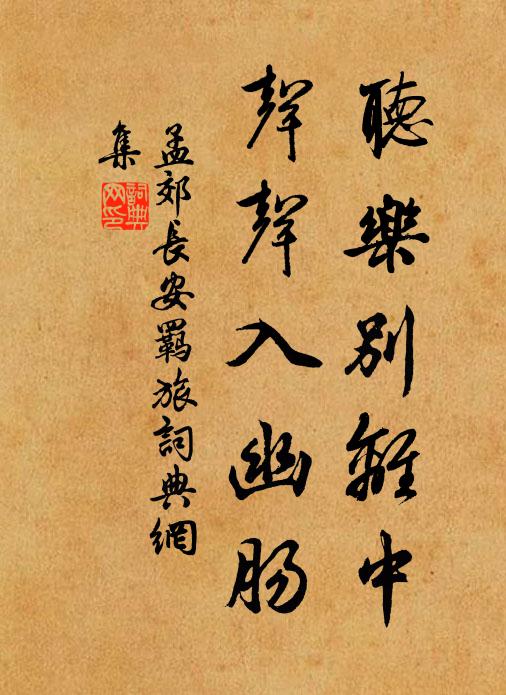 聽樂別離中
聲聲入幽腸
孟郊長安羈旅詞典網
集
詞典
网印